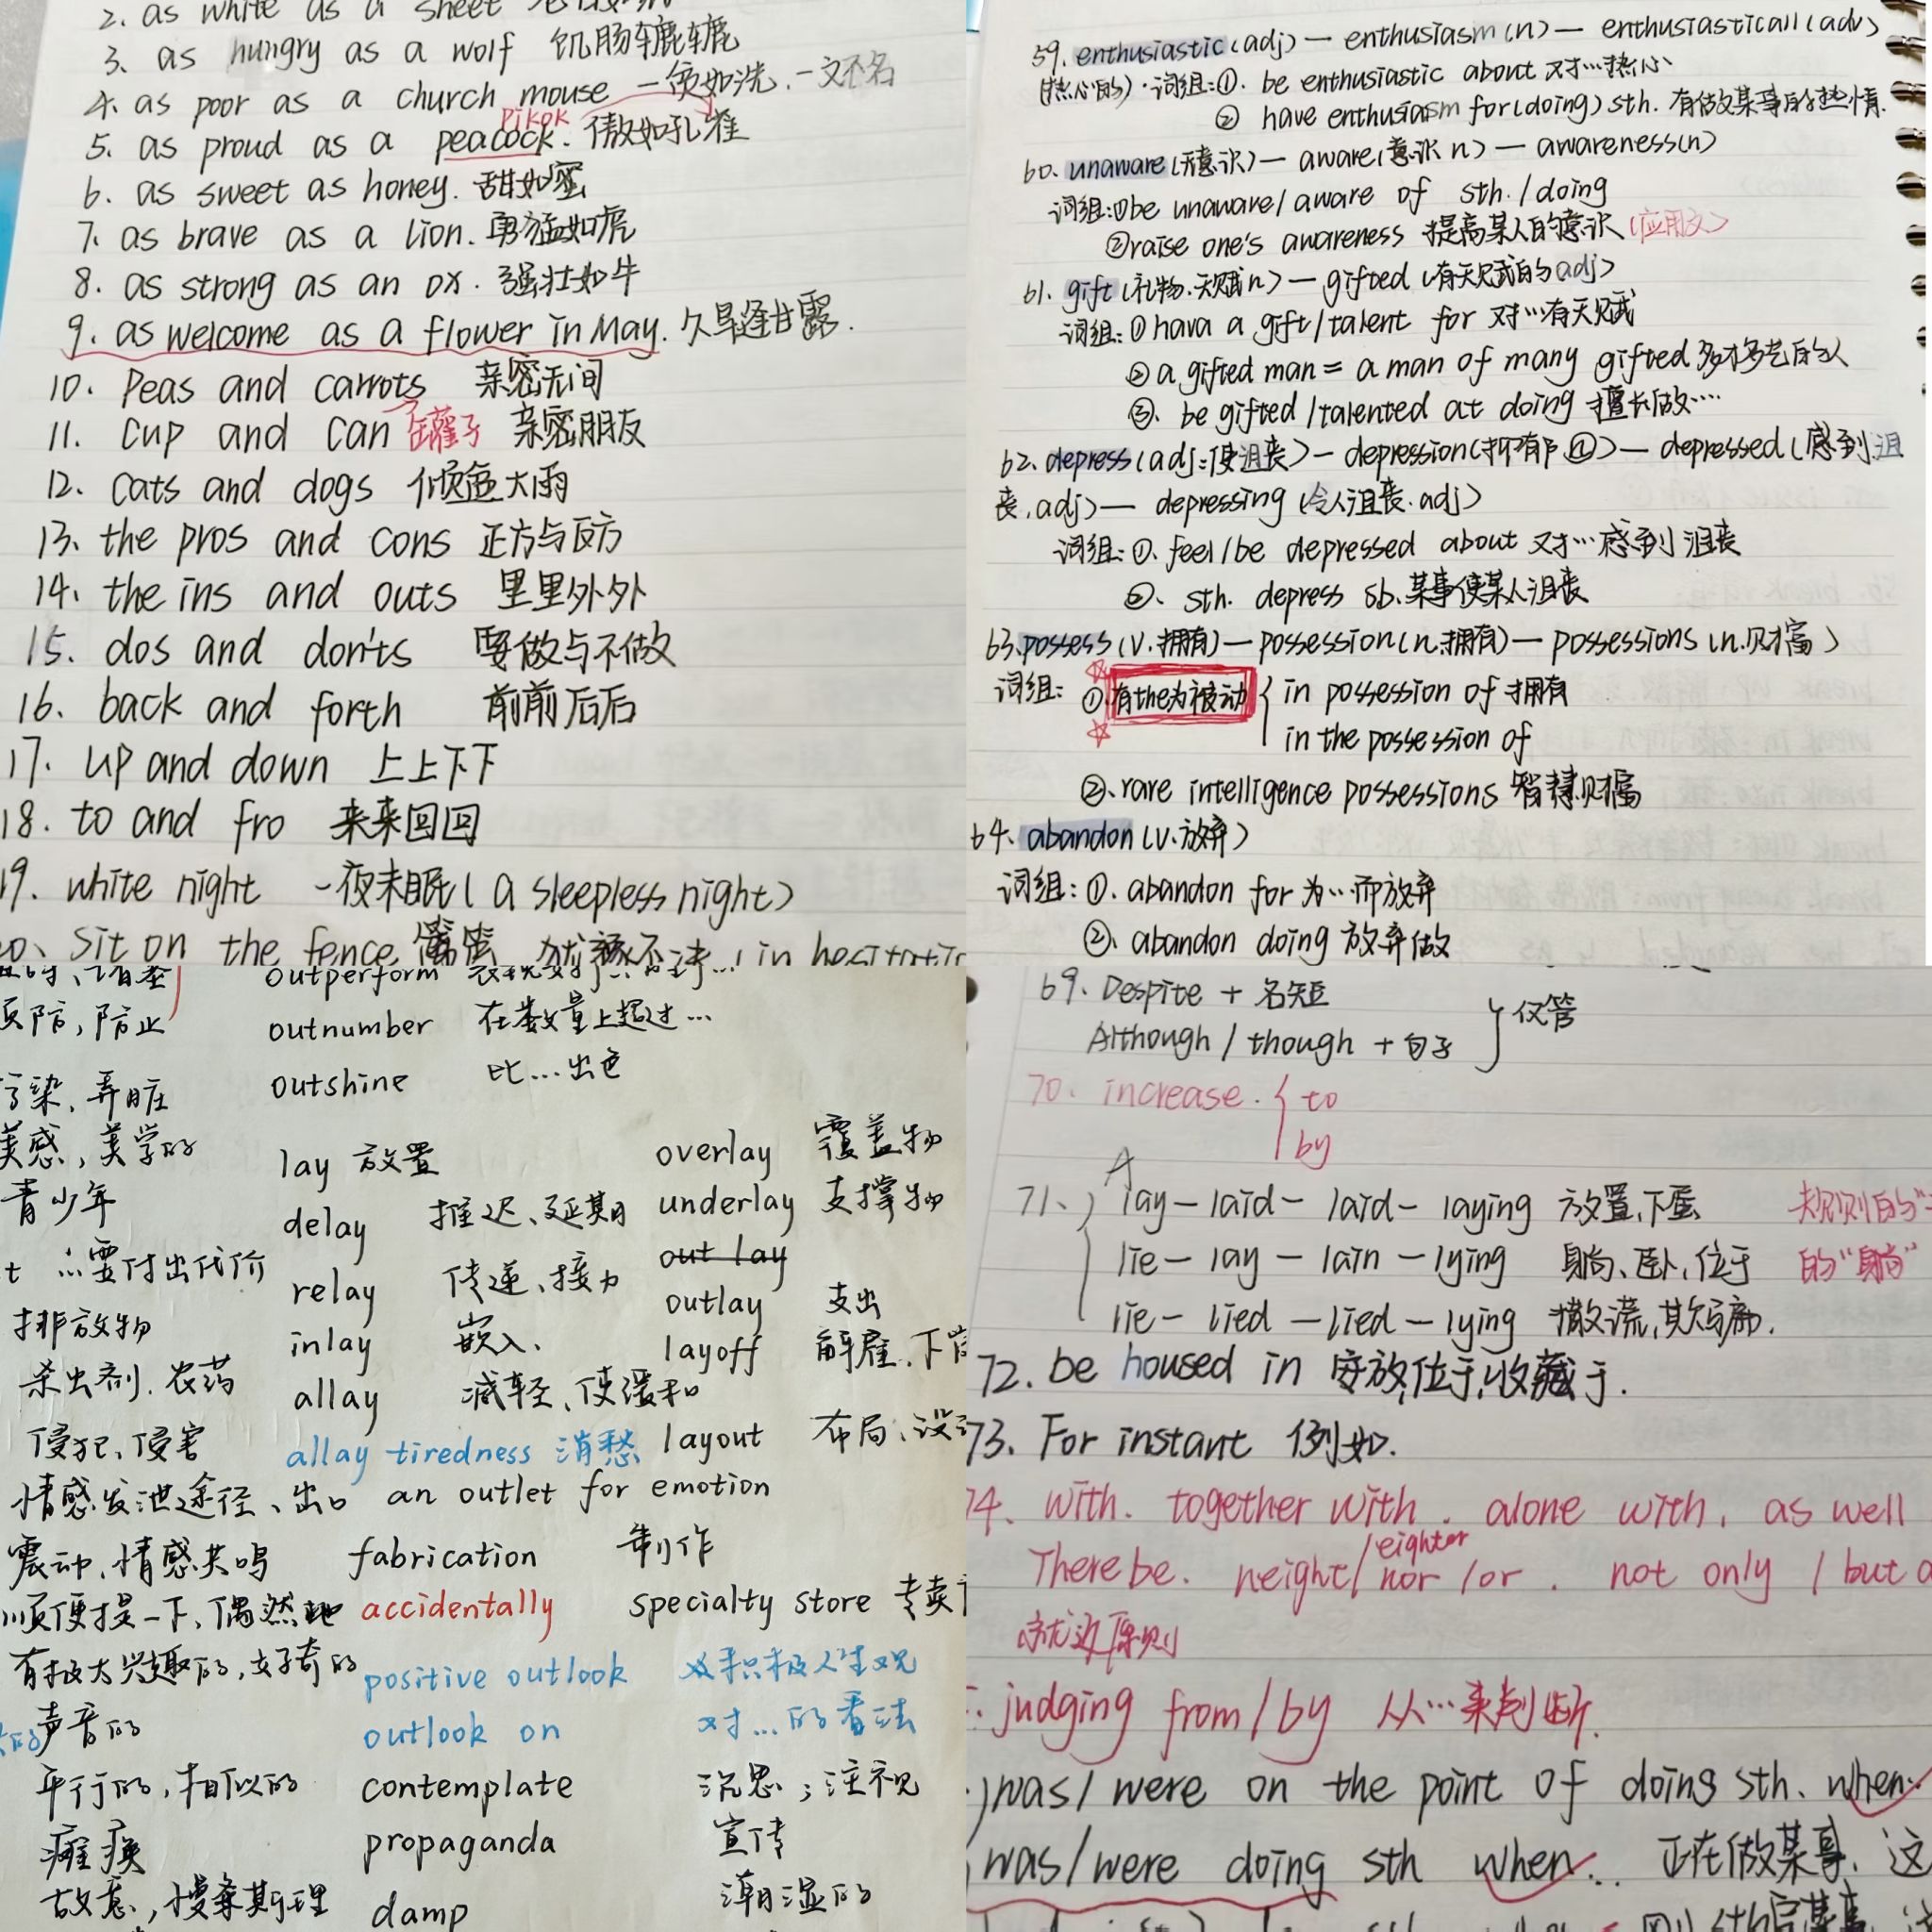 2. as white as a sheet
3. as hungry as a wolf 饥肠辘辘
4. as poor as a church mouse 一贫如洗.一文不名
pikok
5. as proud as a peacock. 傲如孔雀
6. as sweet as honey. 甜如蜜
7. as brave as a lion. 勇猛如虎
8. as strong as an ox. 强壮如牛
9. as welcome as a flower in May. 久旱逢甘露.
10. Peas and carrots 亲密无间
11. Cup and can 罐子 亲密朋友
12. cats and dogs 倾盆大雨
13. the pros and cons 正方与反方
14. the ins and outs 里里外外
15. dos and don'ts 要做与不做
16. back and forth 前前后后
17. up and down 上上下下
18. to and fro 来来回回
19. white night 一夜未眠(a sleepless night)
20、sit on the fence 篱笆
59. enthusiastic(adj)—enthusiasm(n)—enthusiasticall(adv)
(热心的)·词组:①. be enthusiastic about 对…热心
② have enthusiasm for(doing) sth. 有做某事的热情.
60. unaware(无意识)—aware(意识 n)—awareness(n)
词组:①be unaware/aware of sth./doing
②raise one's awareness 提高某人的意识(应用文)
61. gift(礼物.天赋n)—gifted(有天赋的adj)
词组:①hava a gift/talent for 对…有天赋
②a gifted man=a man of many gifted 多才多艺的人
③. be gifted/talented at doing 擅长做…
62. depress(adj:使沮丧)—depression(抑郁 n)—depressed(感到沮
丧.adj)—depressing(令人沮丧.adj)
词组:①. feel/be depressed about 对…感到沮丧
②. sth. depress sb.某事使某人沮丧
63.possess(v.拥有)—possession(n.拥有)—possessions(n.财富)
词组: ①.有the为被动 { in possession of 拥有
in the possession of
②.rare intelligence possessions 智慧财富
64. abandon(v.放弃)
词组:①. abandon for 为…而放弃
②. abandon doing 放弃做
outperform
预防,防止 outnumber 在数量上超过…
污染、弄脏 outshine 比…出色
美感,美学的 lay 放置 overlay 覆盖物
青少年 delay 推迟、延期 underlay 支撑物
t ∴要付出代价 relay 传递、接力 out lay
排放物 inlay 嵌入、 outlay 支出
杀虫剂.农药 allay 减轻、使缓和 layoff 解雇、下岗
侵犯、侵害 allay tiredness 消愁 layout 布局、设计
情感发泄途径、出口 an outlet for emotion
震动,情感共鸣 fabrication 制作
顺便提一下、偶然地 accidentally specialty store 专卖
有极大兴趣的,好奇的 positive outlook 积极人生观
声音的 outlook on 对…的看法
平行的,相似的 contemplate 沉思;注视
瘫痪 propaganda 宣传
故意,慢条斯理 damp 潮湿的
69. Despite + 名短
Although / though + 句子 } 仅管
70. increase. { to
by
71、 lay—laid—laid—laying 放置,下蛋 规则的
lie—lay—lain—lying 躺、卧,位于 的"躺"
lie—lied—lied—lying 撒谎,欺骗.
72. be housed in 安放,位于,收藏于.
73. For instant 例如.
74. with. together with. alone with, as well
There be. neight/eighter nor/or. not only / but a
就近原则
judging from/by 从…来判断.
was/were on the point of doing sth. when…
was/were doing sth when… 正在做某事,这